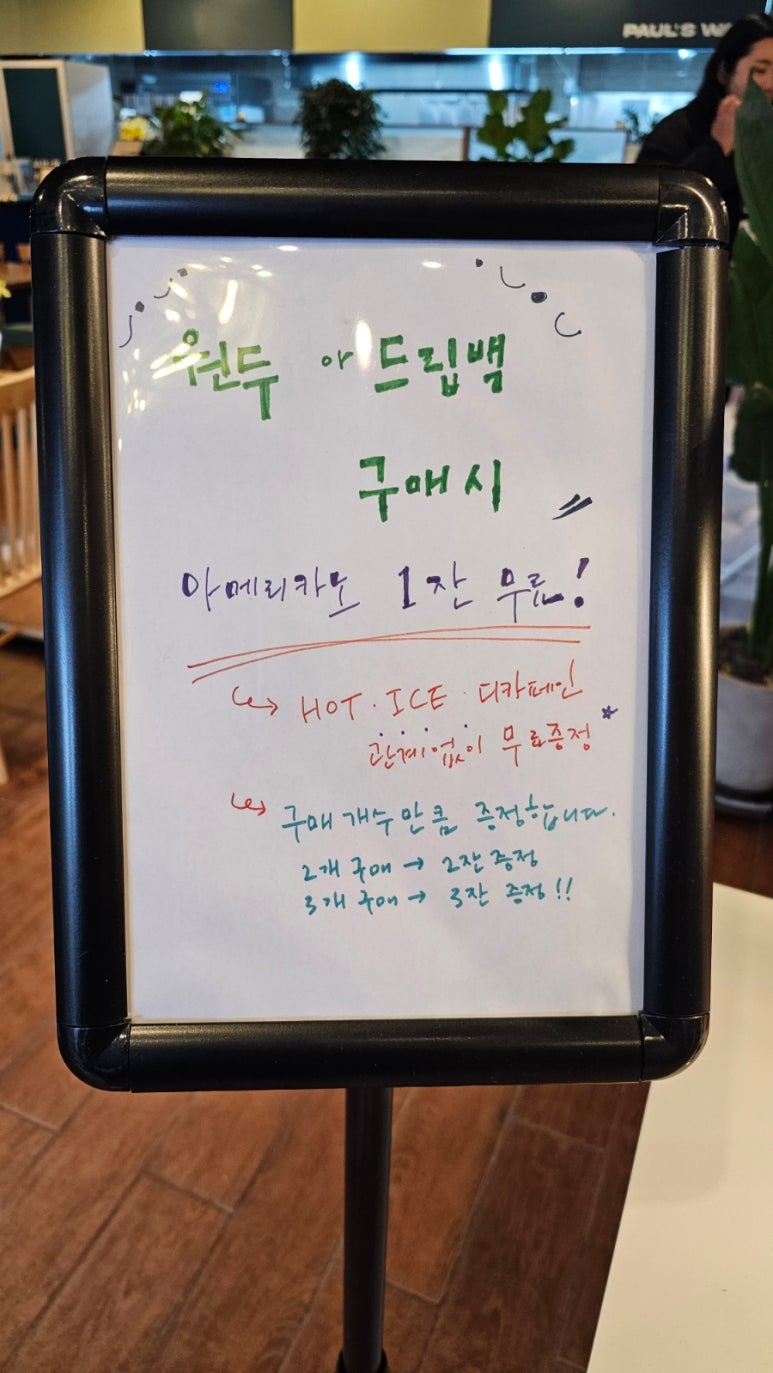 PAUL'S
원두 아 드립백
구매시
아메리카노 1잔 무료!
HOT · ICE · 디카페인
관계없이 무료증정
구매 개수만큼 증정합니다.
2개 구매 → 2잔 증정
3개 구매 → 3잔 증정!!